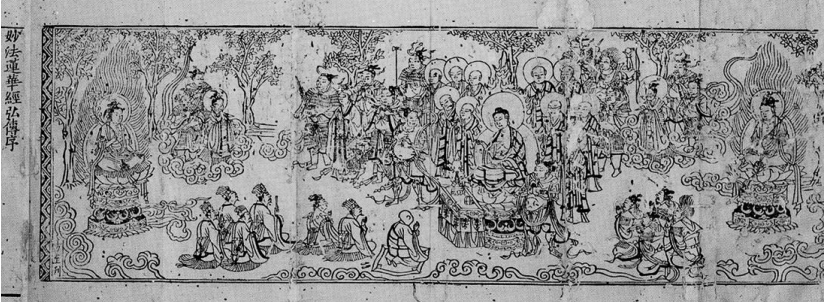 妙法蓮華經弘傳序